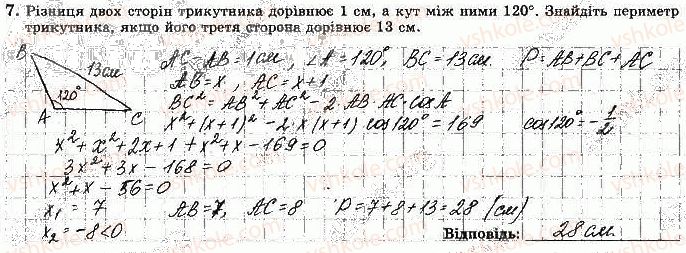 7. Різниця двох сторін трикутника дорівнює 1 см, а кут між ними 120°. Знайдіть периметр
трикутника, якщо його третя сторона дорівнює 13 см.
B 13см 120° A C
AC - AB = 1см, ∠A = 120°, BC = 13см. P = AB + BC + AC
AB = x, AC = x + 1
BC² = AB² + AC² - 2·AB·AC·cosA
x² + (x+1)² - 2·x(x+1) cos120° = 169 cos120° = -1/2
x² + x² + 2x + 1 + x² + x - 169 = 0
3x² + 3x - 168 = 0
x² + x - 56 = 0
x₁ = 7 AB = 7, AC = 8 P = 7 + 8 + 13 = 28 (см)
x₂ = -8 < 0
Відповідь: 28 см.